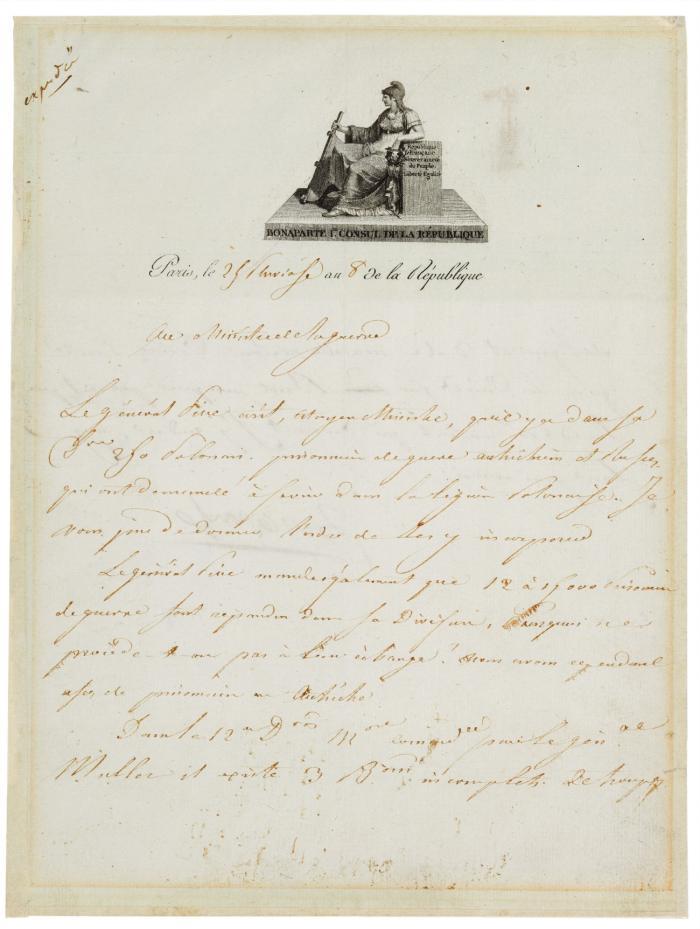 expédié
République
Française
Souveraineté
du Peuple.
Liberté Egalité
BONAPARTE 1er CONSUL DE LA RÉPUBLIQUE
Paris, le 25 Pluviose an 8 de la République
Au Ministre de la guerre
Le général écrit, citoyen Ministre, qu'il y a dans sa
Don 250 Polonais prisonniers de guerre autrichiens et Russes,
qui ont demandé à servir dans la légion Polonaise. Je
vous prie de donner l'ordre de les y incorporer
Le général mande également que 12 à 15,000 Prisonniers
de guerre sont répandus dans sa Division, Pourquoi ne
procède-t-on pas à leur échange? nous avons cependant
assez de prisonniers en Autriche
Dans la 12e Don Mre commdée par le génal
Muller il existe 3 Bons incomplets de troupes